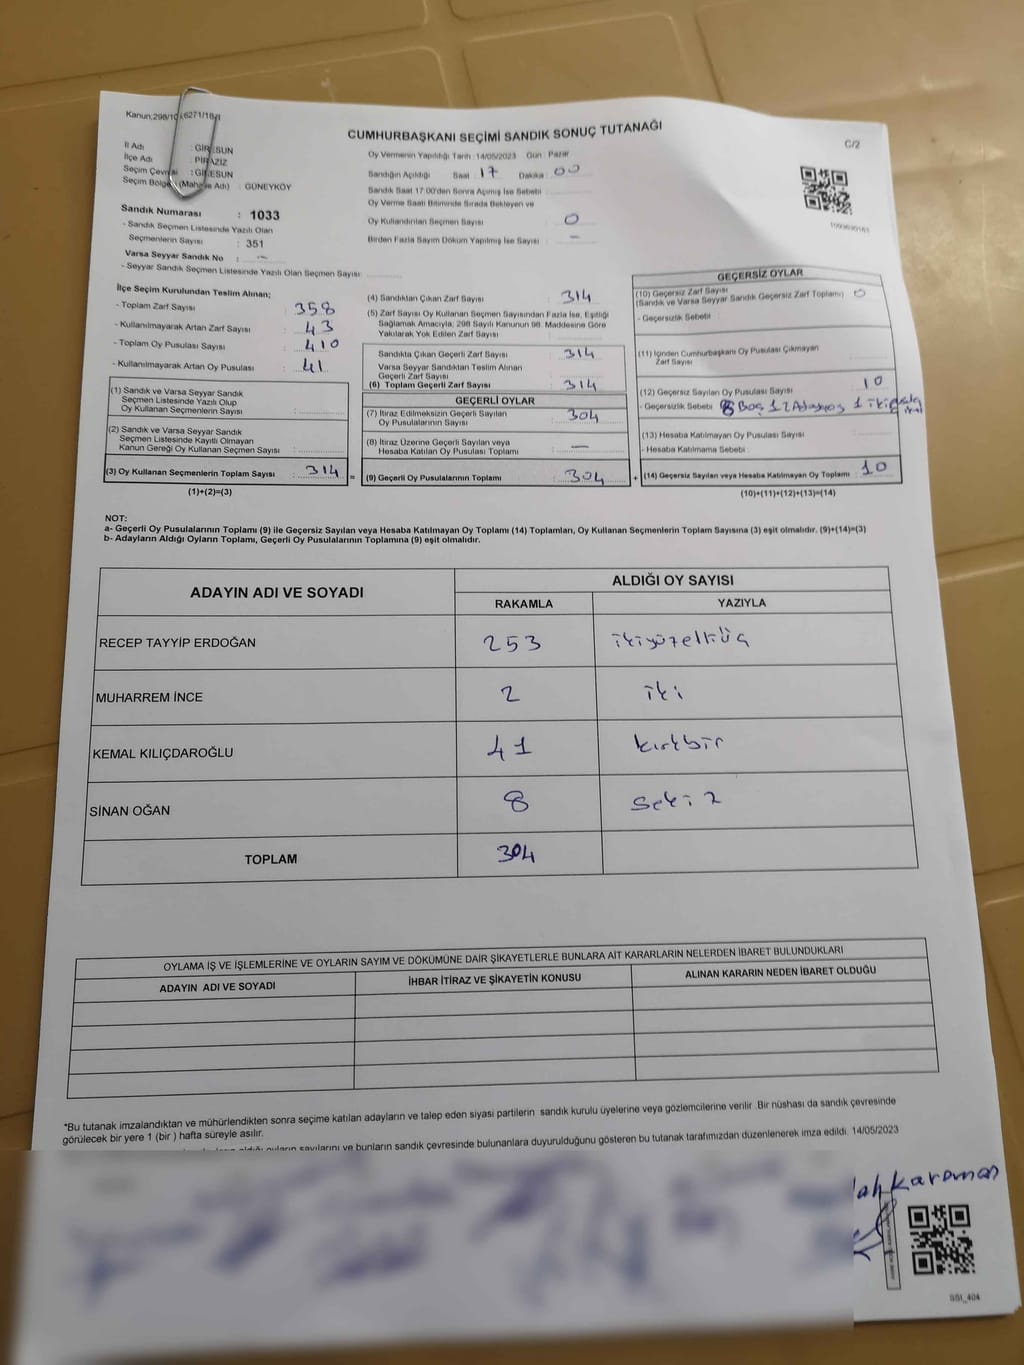 Kanun,298/10 6271/18
CUMHURBAŞKANI SEÇİMİ SANDIK SONUÇ TUTANAĞI
C/2
İl Adı : GİRESUN
İlçe Adı : PİRAZİZ
Seçim Çevresi : GİRESUN
Seçim Bölgesi (Mahalle Adı) : GÜNEYKÖY
Sandık Numarası : 1033
- Sandık Seçmen Listesinde Yazılı Olan
Seçmenlerin Sayısı : 351
Varsa Seyyar Sandık No : -
- Seyyar Sandık Seçmen Listesinde Yazılı Olan Seçmen Sayısı
Oy Vermenin Yapıldığı Tarih : 14/05/2023 Gün : Pazar
Sandığın Açıldığı Saat 17 Dakika : 00
Sandık Saat 17:00'den Sonra Açılmış İse Sebebi
Oy Verme Saati Bitiminde Sırada Bekleyen ve
Oy Kullandırılan Seçmen Sayısı 0
Birden Fazla Sayım Döküm Yapılmış İse Sayısı : -
İlçe Seçim Kurulundan Teslim Alınan;
- Toplam Zarf Sayısı : 358
- Kullanılmayarak Artan Zarf Sayısı : 43
- Toplam Oy Pusulası Sayısı : 410
- Kullanılmayarak Artan Oy Pusulası : 41
(1) Sandık ve Varsa Seyyar Sandık
Seçmen Listesinde Yazılı Olup
Oy Kullanan Seçmenlerin Sayısı
(2) Sandık ve Varsa Seyyar Sandık
Seçmen Listesinde Kayıtlı Olmayan
Kanun Gereği Oy Kullanan Seçmen Sayısı
(3) Oy Kullanan Seçmenlerin Toplam Sayısı : 314
(1)+(2)=(3)
(4) Sandıktan Çıkan Zarf Sayısı : 314
(5) Zarf Sayısı Oy Kullanan Seçmen Sayısından Fazla İse, Eşitliği
Sağlamak Amacıyla, 298 Sayılı Kanunun 98. Maddesine Göre
Yakılarak Yok Edilen Zarf Sayısı
Sandıkta Çıkan Geçerli Zarf Sayısı : 314
Varsa Seyyar Sandıktan Teslim Alınan
Geçerli Zarf Sayısı
(6) Toplam Geçerli Zarf Sayısı : 314
GEÇERLİ OYLAR
(7) İtiraz Edilmeksizin Geçerli Sayılan
Oy Pusulalarının Sayısı 304
(8) İtiraz Üzerine Geçerli Sayılan veya
Hesaba Katılan Oy Pusulası Toplamı : -
= (9) Geçerli Oy Pusulalarının Toplamı : 304 +
GEÇERSİZ OYLAR
(10) Geçersiz Zarf Sayısı
(Sandık ve Varsa Seyyar Sandık Geçersiz Zarf Toplamı) 0
- Geçersizlik Sebebi :
(11) İçinden Cumhurbaşkanı Oy Pusulası Çıkmayan
Zarf Sayısı
(12) Geçersiz Sayılan Oy Pusulası Sayısı : 10
- Geçersizlik Sebebi : 8 Boş 1 1
(13) Hesaba Katılmayan Oy Pusulası Sayısı
- Hesaba Katılmama Sebebi :
(14) Geçersiz Sayılan veya Hesaba Katılmayan Oy Toplamı : 10
(10)+(11)+(12)+(13)=(14)
NOT:
a- Geçerli Oy Pusulalarının Toplamı (9) ile Geçersiz Sayılan veya Hesaba Katılmayan Oy Toplamı (14) Toplamları, Oy Kullanan Seçmenlerin Toplam Sayısına (3) eşit olmalıdır. (9)+(14)=(3)
b- Adayların Aldığı Oyların Toplamı, Geçerli Oy Pusulalarının Toplamına (9) eşit olmalıdır.
ADAYIN ADI VE SOYADI
ALDIĞI OY SAYISI
RAKAMLA YAZIYLA
RECEP TAYYİP ERDOĞAN 253 ikiyüzelliüç
MUHARREM İNCE 2 iki
KEMAL KILIÇDAROĞLU 41 kırkbir
SİNAN OĞAN 8 sekiz
TOPLAM 304
OYLAMA İŞ VE İŞLEMLERİNE VE OYLARIN SAYIM VE DÖKÜMÜNE DAİR ŞİKAYETLERLE BUNLARA AİT KARARLARIN NELERDEN İBARET BULUNDUKLARI
ADAYIN ADI VE SOYADI İHBAR İTİRAZ VE ŞİKAYETİN KONUSU ALINAN KARARIN NEDEN İBARET OLDUĞU
*Bu tutanak imzalandıktan ve mühürlendikten sonra seçime katılan adayların ve talep eden siyasi partilerin sandık kurulu üyelerine veya gözlemcilerine verilir. Bir nüshası da sandık çevresinde
görülecek bir yere 1 (bir ) hafta süreyle asılır.
aldığı oyların sayılarını ve bunların sandık çevresinde bulunanlara duyurulduğunu gösteren bu tutanak tarafımızdan düzenlenerek imza edildi. 14/05/2023
karaman
SSI_404